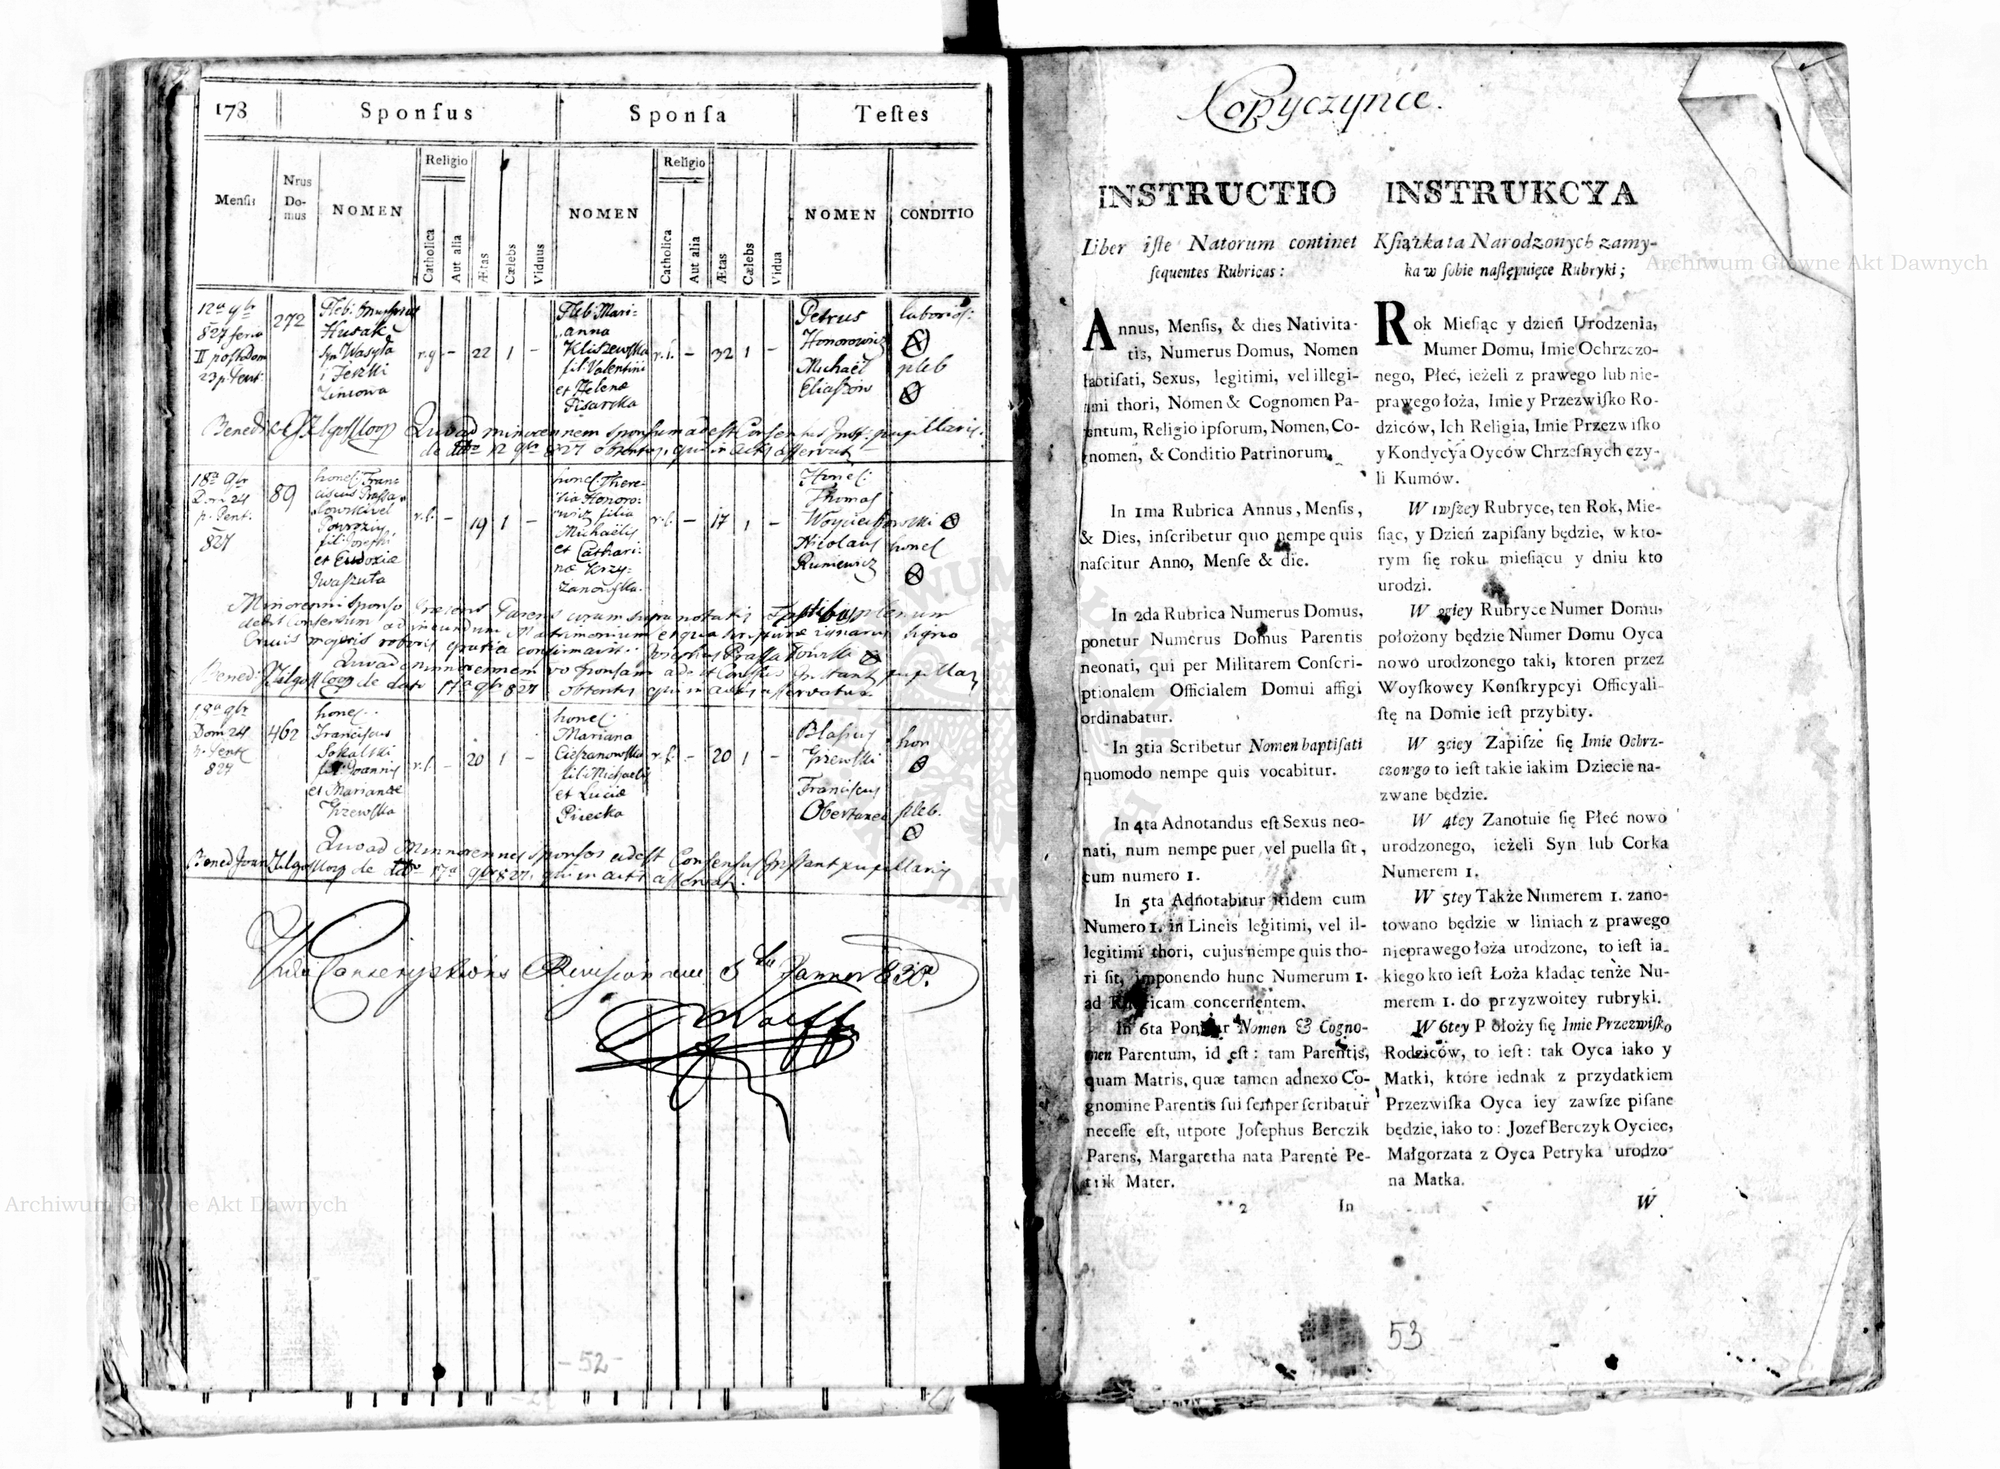 178
Sponſus
Sponſa
Teſtes
Menſis
Nrus
Do-
mus
NOMEN
Religio
Catholica
Aut alia
Ætas
Cælebs
Viduus
NOMEN
Religio
Catholica
Aut alia
Ætas
Cælebs
Vidua
NOMEN
CONDITIO
12a 9br
827 feria
II post dom
23 p. Pent:
272
Husak
syn Wasyla
22 1 -
Mari-
anna
Kliszewska
fil: Valentini
et Helena
Pisarska
- 32 1 -
Petrus
Honorowicz
Michaël
Eliaszów
laborios:
pleb
Quoad minorennem sponsum adest Consensus Inst: pupillaris
de 12 9br 827 obtentus, qui in actis asservatur
18a 9br
Dom 24
p. Pent.
827
89
hones Fran-
ciscus
et Eudoxiæ
Iwaszuta
r.l. - 19 1 -
hones There-
sia Honoro-
wicz filia
Michaelis
et Cathari-
næ Krzy-
żanowska.
r.l. - 17 1 -
Hones:
Thomas
Woyciechowski
Nicolaus hones
Rumewicz
Minorenni sponso
dedit consensum ad ineundum Matrimonium et qua scripturæ ignarus signo
Crucis confirmavit
Quoad minorennem vo sponsam adest Consensus Instant pupillar
de dato 17a 9br 827 obtentus qui in actis asservatur
18a 9br
Dom 24
p. Pent
827
462
hones.
Franciscus
Sokalski
fil: Joannis
et Mariannæ
Grzewska
r.l. - 20 1 -
hones.
Mariana
Cieszanowska
fil: Michaelis
et Luciæ
Pirecka
r.l. - 20 1 -
Blasius
Grzewski
Franciscus
Obertaniec
hon
pleb.
Quoad Minorennes sponsos adest Consensus Instant pupillaris
de 17a 9br 827 qui in actis asservatur.
Vidi Conscriptions Revision am 5ten Janner 832.
- 52 -
Kopyczynce.
INSTRUCTIO
Liber iſte Natorum continet
ſequentes Rubricas:
Annus, Menſis, & dies Nativita-
tis, Numerus Domus, Nomen
baptiſati, Sexus, legitimi, vel illegi-
timi thori, Nomen & Cognomen Pa-
rentum, Religio ipſorum, Nomen, Co-
gnomen, & Conditio Patrinorum.
In 1ma Rubrica Annus, Menſis,
& Dies, inſcribetur quo nempe quis
naſcitur Anno, Menſe & die.
In 2da Rubrica Numerus Domus,
ponetur Numerus Domus Parentis
neonati, qui per Militarem Conſcri-
ptionalem Officialem Domui affigi
ordinabatur.
In 3tia Scribetur Nomen baptiſati
quomodo nempe quis vocabitur.
In 4ta Adnotandus eſt Sexus neo-
nati, num nempe puer, vel puella ſit,
cum numero 1.
In 5ta Adnotabitur itidem cum
Numero 1. in Lineis legitimi, vel il-
legitimi thori, cujus nempe quis tho-
ri ſit, imponendo hunc Numerum 1.
ad Rubricam concernentem.
In 6ta Ponetur Nomen & Cogno-
men Parentum, id eſt: tam Parentis,
quam Matris, quæ tamen adnexo Co-
gnomine Parentis ſui ſemper ſcribatur
neceſſe eſt, utpote Joſephus Berczik
Parens, Margaretha nata Parente Pe-
trik Mater.
** 2
In
INSTRUKCYA
Kſiążka ta Narodzonych zamy-
ka w ſobie naſtępuięce Rubryki;
Rok Mieſiąc y dzień Urodzenia,
Mumer Domu, Imie Ochrzczo-
nego, Płeć, ieżeli z prawego lub nie-
prawego łoża, Imie y Przezwiſko Ro-
dziców, Ich Religia, Imie Przezwiſko
y Kondycya Oyców Chrzeſnych czy-
li Kumów.
W 1wſzey Rubryce, ten Rok, Mie-
ſiąc, y Dzień zapiſany będzie, w kto-
rym ſię roku mieſiącu y dniu kto
urodzi.
W 2giey Rubryce Numer Domu,
położony będzie Numer Domu Oyca
nowo urodzonego taki, ktoren przez
Woyſkowey Konſkrypcyi Officyali-
ſtę na Domie ieſt przybity.
W 3ciey Zapiſze ſię Imie Ochrz-
czonego to ieſt takie iakim Dziecie na-
zwane będzie.
W 4tey Zanotuie ſię Płeć nowo
urodzonego, ieżeli Syn lub Corka
Numerem 1.
W 5tey Także Numerem 1. zano-
towano będzie w liniach z prawego
nieprawego łoża urodzone, to ieſt ia-
kiego kto ieſt Łoża kładąc tenże Nu-
merem 1. do przyzwoitey rubryki.
W 6tey Położy ſię Imie Przezwiſko
Rodziców, to ieſt: tak Oyca iako y
Matki, które iednak z przydatkiem
Przezwiſka Oyca iey zawſze piſane
będzie, iako to: Jozef Berczyk Oyciec,
Małgorzata z Oyca Petryka urodzo-
na Matka.
W
53
Archiwum Główne Akt Dawnych
Archiwum Główne Akt Dawnych